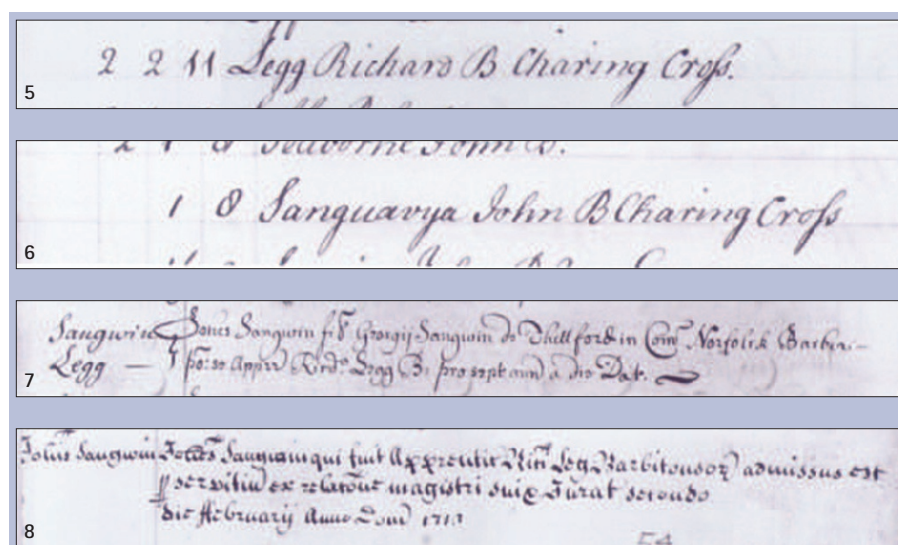 2 2 11 Legg Richard B Charing Cross.
5
1 8 Sanguavya John B Charing Cross
6
Sangwin Johes Sangwin fil Georgij Sangwin de Thettford in Com Norfolck Barber
Legg — Ricdo Legg B: pro sept ann a die Dat.
7
Johes Sangwin Johes Sangwin qui fuit Apprentic Rici Leg Barbitonsor admissus est
p servitiu ex relatione magistri sui & Jurat secondo
die ffebruarij Anno Dom
8